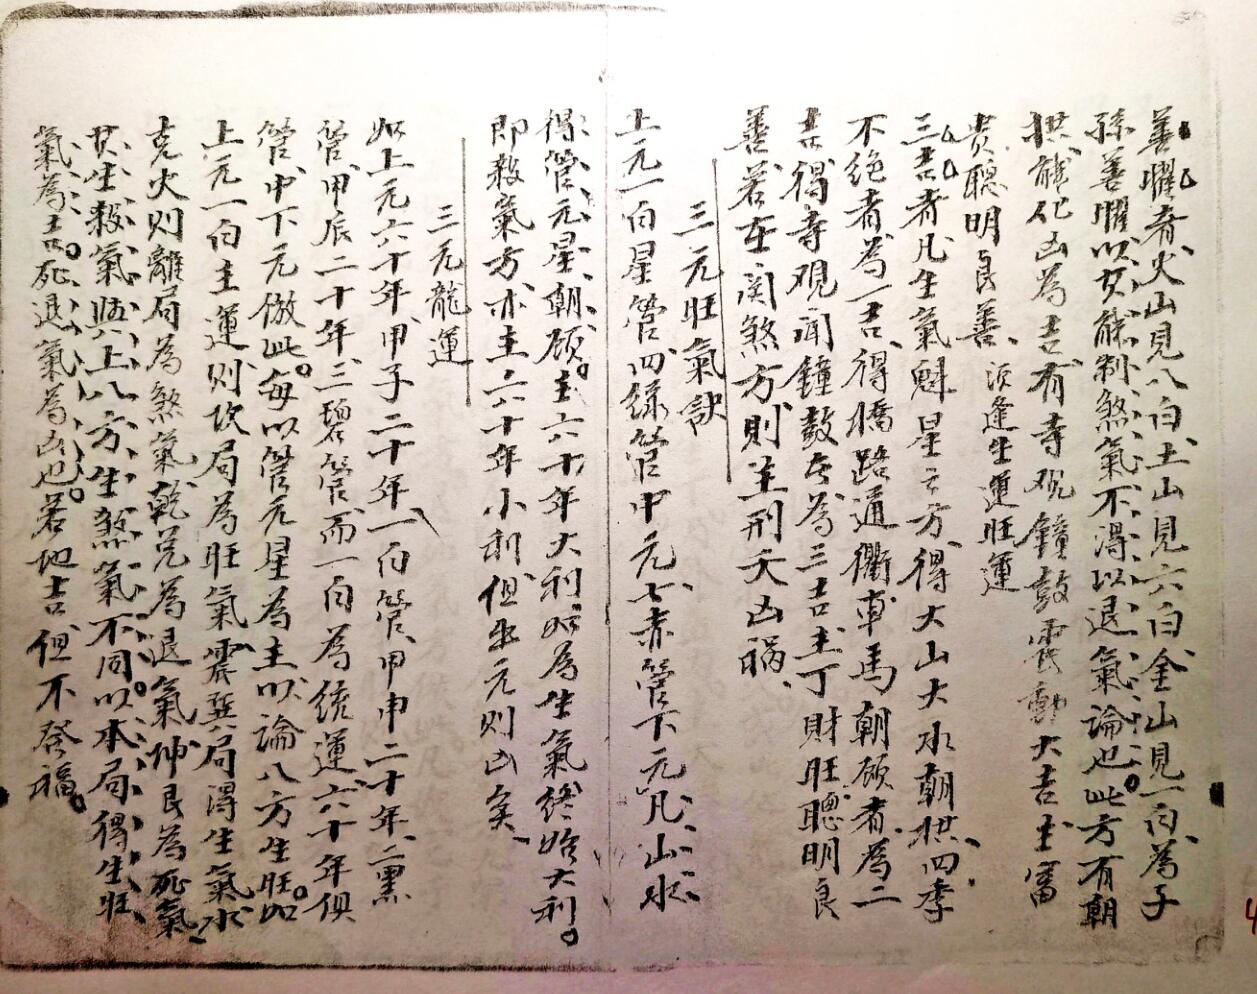 善曜者火山見八白土山見六白金山見一白為子
孫善曜以其能制煞氣不得以退氣論也此方有朝
拱能化凶為吉有寺观鐘鼓震動大吉主富
貴聰明良善須逢生運旺運
三吉者凡生氣魁星之方得大山大水朝拱四季
不絶者為一吉得橋路通衢車馬朝顾者為二
吉得寺观闻鐘鼓去為三吉主丁財旺聰明良
善若在関煞方則主刑夭凶禍
三元旺氣訣
上元一白星管四綠管中元七赤管下元凡山水
得管元星朝顾主六十年大利如為生氣終始大利
即殺氣方亦主六十年小利但出元則凶矣
三元龍運
如上元六十年甲子二十年一白管甲申二十年二黑
管甲辰二十年三碧管而一白為統運六十年俱
管中下元倣此每以管元星為主以論八方生旺如
上元一白主運則坎局為旺氣震巽局得生氣水
克火則離局為煞氣乾兌為退氣坤艮為死氣
其生殺氣與上八方生煞氣不同以本局得生旺
氣為吉死退氣為凶也若地吉但不發福